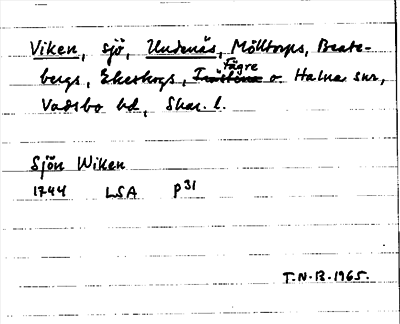 Viken, sjö, Undenäs, Mölltorps, Beate-
bergs, Ekeskogs, Fägre o. Halna snr,
Vadsbo hd, Skar. l.
Sjön Wiken
1744 LSA P31
T.N.B. 1965.